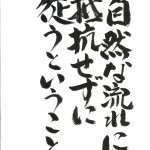 自然な流れに
抵抗せずに
従うということ